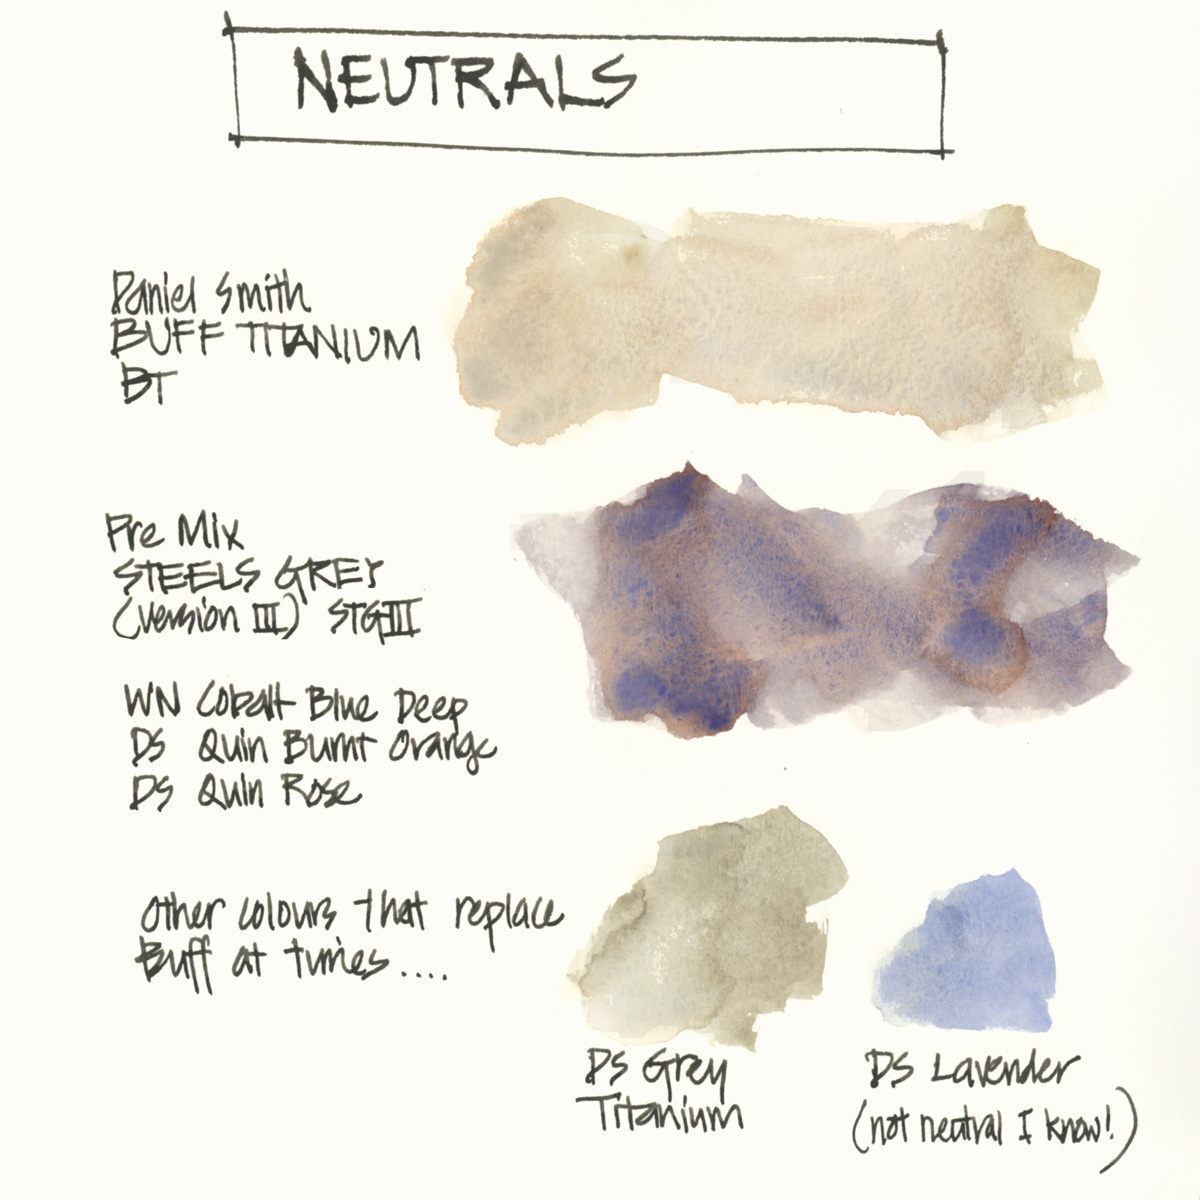 NEUTRALS
Daniel Smith
BUFF TITANIUM
BT
Pre Mix
STEELS GREY
(version III) STGIII
WN Cobalt Blue Deep
DS Quin Burnt Orange
DS Quin Rose
other colours that replace
Buff at times....
DS Grey
Titanium
DS Lavender
(not neutral I know!)